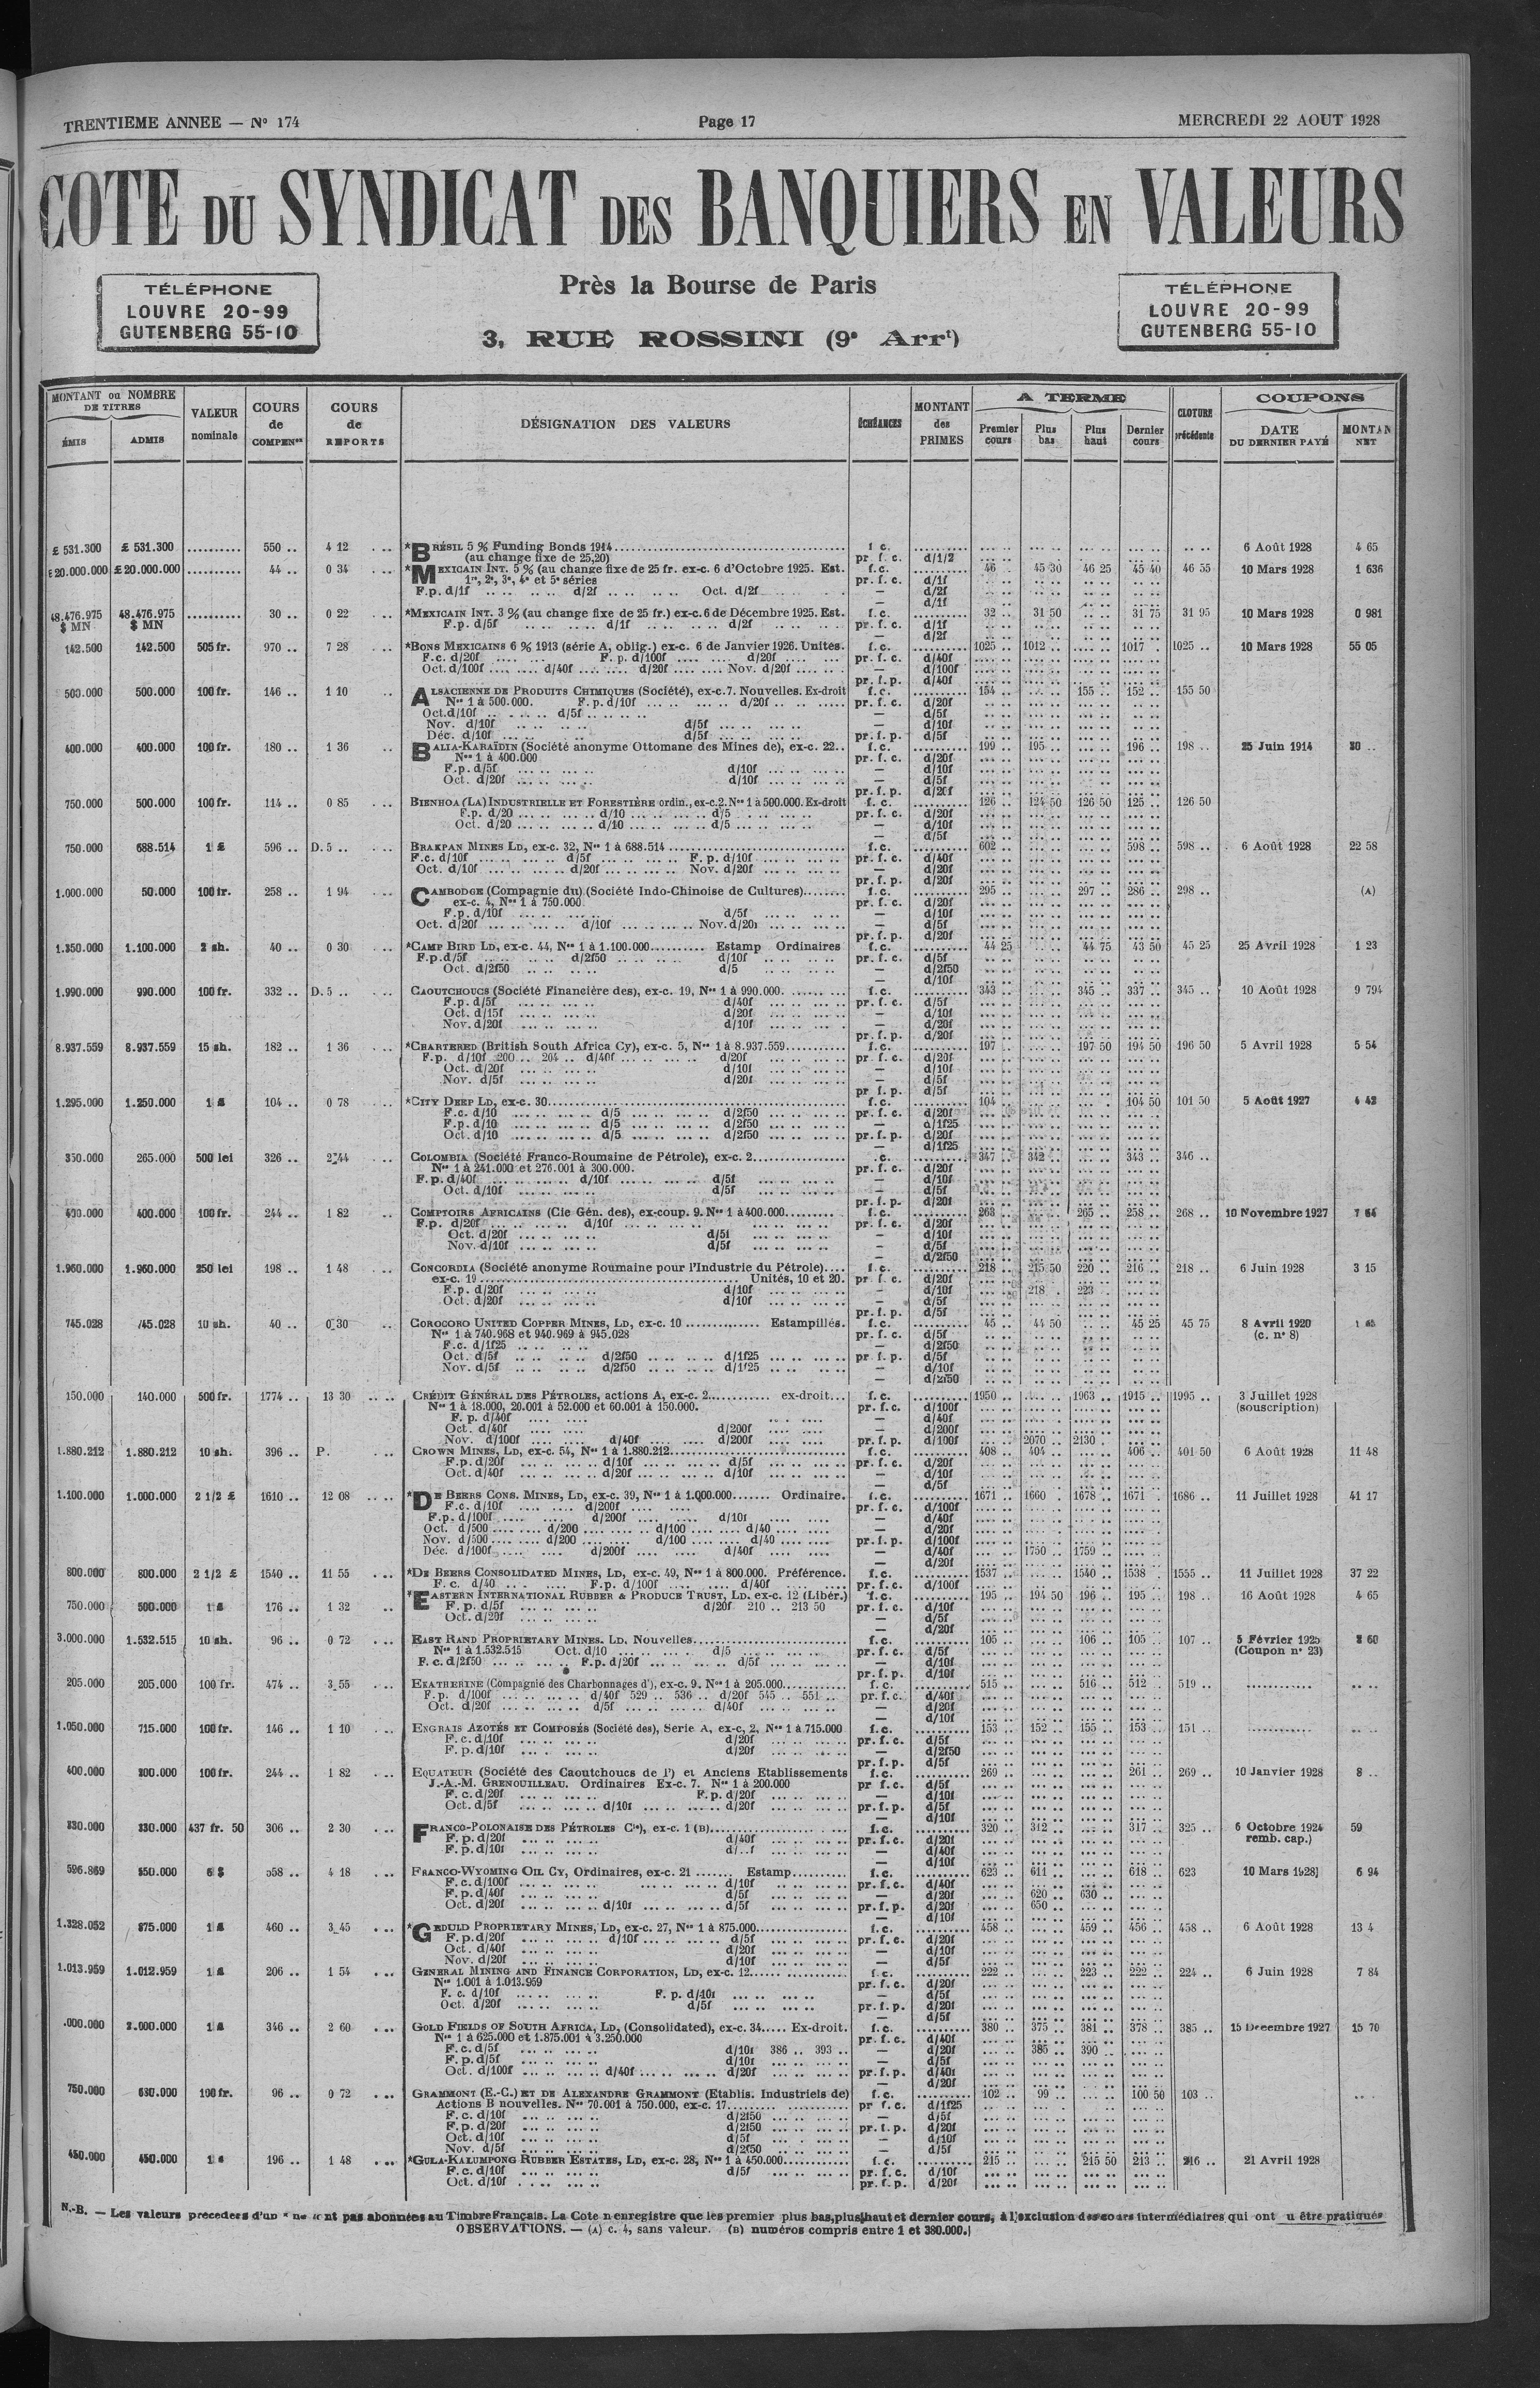 TRENTIEME ANNEE — Nº 174 Page 17 MERCREDI 22 AOUT 1928
COTE DU SYNDICAT DES BANQUIERS EN VALEURS
Près la Bourse de Paris
3, RUE ROSSINI (9e Arrt)
TÉLÉPHONE
LOUVRE 20-99
GUTENBERG 55-10
TÉLÉPHONE
LOUVRE 20-99
GUTENBERG 55-10
MONTANT ou NOMBRE DE TITRES
ÉMIS ADMIS
VALEUR nominale
COURS de COMPENon
COURS de REPORTS
DÉSIGNATION DES VALEURS
ÉCHÉANCES
MONTANT des PRIMES
A TERME
Premier cours Plus bas Plus haut Dernier cours
CLOTURE précédente
COUPONS
DATE DU DERNIER PAYÉ MONTAN NET
£ 531.300 £ 531.300 .......... 550 .. 4 12 *BRÉSIL 5 % Funding Bonds 1914 6 Août 1928 4 65
(au change fixe de 25,20) pr. f. c. d/1/2
£ 20.000.000 £ 20.000.000 .......... 44 .. 0 34 *MEXICAIN INT. 5 % (au change fixe de 25 fr. ex-c. 6 d'Octobre 1925. Est. f.c. 46 45 30 46 25 45 40 46 55 10 Mars 1928 1 636
1re, 2e, 3e, 4e et 5e séries pr. f. c. d/1f
F.p. d/1f d/2f Oct. d/2f — d/2f
— d/1f
48.476.975 48.476.975 .......... 30 .. 0 22 *MEXICAIN INT. 3 % (au change fixe de 25 fr.) ex-c. 6 de Décembre 1925. Est. f.c. 32 .. 31 50 31 75 31 95 10 Mars 1928 0 981
$ MN $ MN F.p. d/5f d/1f d/2f pr. f. c. d/1f
— d/2f
142.500 142.500 505 fr. 970 .. 7 28 *BONS MEXICAINS 6 % 1913 (série A, oblig.) ex-c. 6 de Janvier 1926. Unités. f.c. 1025 .. 1012 .. 1017 1025 .. 10 Mars 1928 55 05
F.c. d/20f F. p. d/100f d/20f pr. f. c. d/40f
Oct. d/100f d/40f d/20f Nov. d/20f — d/100f
pr. f. p. d/40f
500.000 500.000 100 fr. 146 .. 1 10 ALSACIENNE DE PRODUITS CHIMIQUES (Société), ex-c.7. Nouvelles. Ex-droit f.c. 154 .. 155 .. 152 .. 155 50
Nos 1 à 500.000. F.p. d/10f d/20f pr. f. c. d/20f
Oct.d/10f d/5f — d/5f
Nov. d/10f d/5f — d/10f
Déc. d/10f d/5f pr. f. p. d/5f
400.000 400.000 100 fr. 180 .. 1 36 BALIA-KARAÏDIN (Société anonyme Ottomane des Mines de), ex-c. 22.. f.c. 199 .. 195 .. 196 .. 198 .. 25 Juin 1914 20 ..
Nos 1 à 400.000 pr. f. c. d/20f
F.p. d/5f d/10f — d/10f
Oct. d/20f d/10f — d/5f
pr. f. p. d/20f
750.000 500.000 100 fr. 114 .. 0 85 BIENHOA (LA) INDUSTRIELLE ET FORESTIÈRE ordin., ex-c.2. Nos 1 à 500.000. Ex-droit f. c. 126 .. 124 50 126 50 125 .. 126 50
F.p. d/20 d/10 d/5 pr. f. c. d/20f
Oct. d/20 d/10 d/5 — d/10f
— d/5f
750.000 688.514 1 £ 596 .. D. 5 .. BRAKPAN MINES LD, ex-c. 32, Nos 1 à 688.514 f.c. 602 .. 598 .. 598 .. 6 Août 1928 22 58
F.c. d/10f d/5f F. p. d/10f pr. f. c. d/40f
Oct. d/10f d/20f Nov. d/20f — d/20f
pr. f. p. d/20f
1.000.000 50.000 100 fr. 258 .. 1 94 CAMBODGE (Compagnie du) (Société Indo-Chinoise de Cultures) f.c. 295 .. 297 .. 286 .. 298 .. (A)
ex-c. 4, Nos 1 à 750.000 pr. f. c. d/20f
F.p. d/10f d/5f — d/10f
Oct. d/20f d/10f Nov. d/20f — d/5f
pr. f. p. d/20f
1.350.000 1.100.000 2 sh. 40 .. 0 30 *CAMP BIRD LD, ex-c. 44, Nos 1 à 1.100.000 Estamp Ordinaires f.c. 44 25 44 75 43 50 45 25 25 Avril 1928 1 23
F.p.d/5f d/2f50 d/10f pr. f. c. d/5f
Oct. d/2f50 d/5 — d/2f50
— d/10f
1.990.000 990.000 100 fr. 332 .. D. 5 .. CAOUTCHOUCS (Société Financière des), ex-c. 19, Nos 1 à 990.000. f.c. 343 345 .. 337 .. 345 .. 10 Août 1928 9 794
F.p. d/5f d/40f pr. f. c. d/5f
Oct. d/15f d/20f — d/10f
Nov. d/20f d/10f — d/20f
pr. f. p. d/20f
8.937.559 8.937.559 15 sh. 182 .. 1 36 *CHARTERED (British South Africa Cy), ex-c. 5, Nos 1 à 8.937.559 f.c. 197 .. 197 50 194 50 196 50 5 Avril 1928 5 54
F.p. d/10f 200 .. 204 .. d/40f d/20f pr. f. c. d/20f
Oct. d/20f d/10f — d/10f
Nov. d/5f d/20f — d/5f
pr. f. p. d/5f
1.295.000 1.250.000 1 £ 104 .. 0 78 *CITY DEEP LD, ex-c. 30 f.c. 104 .. 104 50 101 50 5 Août 1927 4 42
F.c. d/10 d/5 d/2f50 pr. f. c. d/20f
F.p. d/10 d/5 d/2f50 — d/1f25
Oct. d/10 d/5 d/2f50 pr. f. p. d/20f
— d/1f25
350.000 265.000 500 lei 326 .. 2 44 COLOMBIA (Société Franco-Roumaine de Pétrole), ex-c. 2 .c. 347 342 .. 343 .. 346 ..
Nos 1 à 241.000 et 276.001 à 300.000. pr. f. c. d/20f
F.p. d/40f d/10f d/5f — d/10f
Oct. d/10f d/5f — d/5f
pr. f. p. d/20f
400.000 400.000 100 fr. 244 .. 1 82 COMPTOIRS AFRICAINS (Cie Gén. des), ex-coup. 9. Nos 1 à 400.000 f.c. 263 .. 265 .. 258 .. 268 .. 10 Novembre 1927 7 64
F.p. d/20f d/10f pr. f. c. d/20f
Oct. d/20f d/5f — d/10f
Nov. d/10f d/5f — d/5f
— d/2f50
1.960.000 1.960.000 250 lei 198 .. 1 48 CONCORDIA (Société anonyme Roumaine pour l'Industrie du Pétrole) f.c. 218 .. 215 50 220 .. 216 .. 218 .. 6 Juin 1928 3 15
ex-c. 19 Unités, 10 et 20. pr f. c. d/20f
F.p. d/20f d/10f — d/10f 218 . 223
Oct. d/20f d/10f — d/5f
pr. f. p. d/5f
745.028 745.028 10 sh. 40 .. 0 30 COROCORO UNITED COPPER MINES, LD, ex-c. 10 Estampillés. f.c. 45 .. 44 50 45 25 45 75 8 Avril 1920
Nos 1 à 740.968 et 940.969 à 945.028 pr. f. c. d/5f (c. nº 8)
F.c. d/1f25 — d/2f50
Oct. d/5f d/2f50 d/1f25 pr f. p. d/5f
Nov. d/5f d/2f50 d/1f25 — d/10f
— d/2f50
150.000 140.000 500 fr. 1774 .. 13 30 CRÉDIT GÉNÉRAL DES PÉTROLES, actions A, ex-c. 2 ex-droit f.c. 1950 .. 1963 .. 1915 .. 1995 .. 3 Juillet 1928
Nos 1 à 18.000, 20.001 à 52.000 et 60.001 à 150.000. pr. f.c. d/100f (souscription)
F. p. d/40f — d/40f
Oct. d/40f d/200f — d/200f
Nov. d/100f d/40f d/200f pr. f. p. d/100f 2070 .. 2130 .
1.880.212 1.880.212 10 sh. 396 .. P. CROWN MINES, LD, ex-c. 54, Nos 1 à 1.880.212 f.c. 408 .. 404 .. 406 .. 401 50 6 Août 1928 11 48
F.p. d/20f d/10f d/5f pr. f. c. d/20f
Oct. d/40f d/20f d/10f — d/10f
— d/5f
1.100.000 1.000.000 2 1/2 £ 1610 .. 12 08 *DE BEERS CONS. MINES, LD, ex-c. 39, Nos 1 à 1.000.000 Ordinaire. f.c. 1671 .. 1660 . 1678 .. 1671 . 1686 .. 11 Juillet 1928 41 17
F.c. d/10f d/200f pr. f. c. d/100f
F.p. d/100f d/200f d/10f — d/40f
Oct. d/500 d/200 d/100 d/40 — d/20f
Nov. d/500 d/200 d/100 d/40 pr. f. p. d/100f
Déc. d/100f d/200f d/40f — d/40f 1750 .. 1759 ..
— d/20f
800.000 800.000 2 1/2 £ 1540 .. 11 55 *DE BEERS CONSOLIDATED MINES, LD, ex-c. 49, Nos 1 à 800.000. Préférence. f.c. 1537 .. 1540 .. 1538 .. 1555 .. 11 Juillet 1928 37 22
F. c. d/40 F.p. d/100f d/40f pr. f. c. d/100f
750.000 500.000 1 £ 176 .. 1 32 *EASTERN INTERNATIONAL RUBBER & PRODUCE TRUST, LD. ex-c. 12 (Libér.) f.c. 195 .. 194 50 196 .. 195 .. 198 .. 16 Août 1928 4 65
F. p. d/5f d/20f 210 .. 213 50 pr. f. c. d/10f
Oct. d/20f — d/5f
— d/20f
3.000.000 1.532.515 10 sh. 96 .. 0 72 EAST RAND PROPRIETARY MINES. LD. Nouvelles f.c. 105 .. 106 .. 105 .. 107 .. 5 Février 1925 2 60
Nos 1 à 1.532.515 Oct. d/10 d/5 pr. f. c. d/5f (Coupon nº 23)
F. c. d/2f50 F.p. d/20f d/5f — d/10f
pr. f. p. d/10f
205.000 205.000 100 fr. 474 .. 3 55 EKATHERINE (Compagnie des Charbonnages d'), ex-c. 9. Nos 1 à 205.000 f. c. 515 .. 516 .. 512 .. 519 ..
F.p. d/100f d/40f 529 .. 536 .. d/20f 545 .. 551 .. pr. f. c. d/40f
Oct. d/20f d/5f d/40f — d/20f
— d/10f
1.050.000 715.000 100 fr. 146 .. 1 10 ENGRAIS AZOTÉS ET COMPOSÉS (Société des), Serie A, ex-c, 2, Nos 1 à 715.000 f.c. 153 .. 152 .. 155 .. 153 .. 151 ..
F. c. d/10f d/20f pr. f. c. d/5f
F. p. d/10f d/20f — d/2f50
pr. f. p. d/5f
400.000 200.000 100 fr. 244 .. 1 82 EQUATEUR (Société des Caoutchoucs de l') et Anciens Etablissements f.c. 269 .. 261 .. 269 .. 10 Janvier 1928 8 ..
J.-A.-M. GRENOUILLEAU. Ordinaires Ex-c. 7. Nos 1 à 200.000 pr f. c. d/5f
F. c. d/20f F.p. d/20f — d/10f
Oct. d/5f d/10f d/20f pr. f. p. d/5f
— d/10f
330.000 330.000 437 fr. 50 306 .. 2 30 FRANCO-POLONAISE DES PÉTROLES Cie), ex-c. 1 (B) f.c. 320 .. 312 .. 317 .. 325 .. 6 Octobre 1924 59
F. p. d/20f d/40f pr. f. c. d/20f remb. cap.)
F. p. d/10f — d/40f
— d/10f
596.869 550.000 6 $ 558 .. 4 18 FRANCO-WYOMING OIL CY, Ordinaires, ex-c. 21 Estamp f.c. 623 .. 611 .. 618 .. 623 10 Mars 1928 6 94
F. c. d/100f d/10f pr. f. c. d/40f
F. p. d/40f d/5f — d/20f 620 .. 630 ..
Oct. d/20f d/10f d/5f pr. f. p. d/20f 650 ..
— d/10f
1.328.052 875.000 1 £ 460 .. 3 45 *GEDULD PROPRIETARY MINES, LD, ex-c. 27, Nos 1 à 875.000 f.c. 458 .. 459 .. 456 .. 458 .. 6 Août 1928 13 4
F. p.d/20f d/10f d/5f pr. f. c. d/20f
Oct. d/40f d/20f — d/10f
Nov. d/20f d/10f — d/5f
1.013.959 1.012.959 1 £ 206 .. 1 54 GENERAL MINING AND FINANCE CORPORATION, LD, ex-c. 12 f.c. 222 .. 223 .. 222 .. 224 .. 6 Juin 1928 7 84
Nos 1.001 à 1.013.959 pr. f. c. d/20f
F. c. d/10f F. p. d/40f — d/5f
Oct. d/20f d/5f pr. f. p. d/20f
— d/5f
.000.000 2.000.000 1 £ 346 .. 2 60 GOLD FIELDS OF SOUTH AFRICA, LD, (Consolidated), ex-c. 34 Ex-droit. f.c. 380 .. 375 .. 381 .. 378 .. 385 .. 15 Decembre 1927 15 70
Nos 1 à 625.000 et 1.875.001 à 3.250.000 pr. f. c. d/40f
F. c. d/5f d/10f 386 .. 393 .. — d/20f 385 .. 390 ..
F. p. d/5f d/10f — d/5f
Oct. d/100f d/40f d/20f pr. f. p. d/40f
— d/20f
750.000 680.000 100 fr. 96 .. 0 72 GRAMMONT (E.-C.) ET DE ALEXANDRE GRAMMONT (Etablis. Industriels de) f.c. 102 .. 99 .. 100 50 103 ..
Actions B nouvelles. Nos 70.001 à 750.000, ex-c. 17 pr f. c. d/1f25
F. c. d/10f d/2f50 — d/5f
F. p. d/20f d/2f50 pr. f. p. d/20f
Oct. d/10f d/5f — d/10f
Nov. d/5f d/2f50 — d/5f
450.000 450.000 196 .. 1 48 *GULA-KALUMPONG RUBBER ESTATES, LD, ex-c. 28, Nos 1 à 450.000 f.c. 215 .. 215 50 213 .. 216 .. 21 Avril 1928
F. c. d/10f d/5f pr. f. c. d/10f
Oct. d/10f pr. f. p. d/20f
N.-B. — Les valeurs precedees d'un * ne sont pas abonnées au Timbre Français. La Cote n enregistre que les premier plus bas, plus haut et dernier cours, à l'exclusion des cours intermédiaires qui ont u être pratiqués
OBSERVATIONS. — (A) c. 4, sans valeur. (B) numéros compris entre 1 et 380.000.